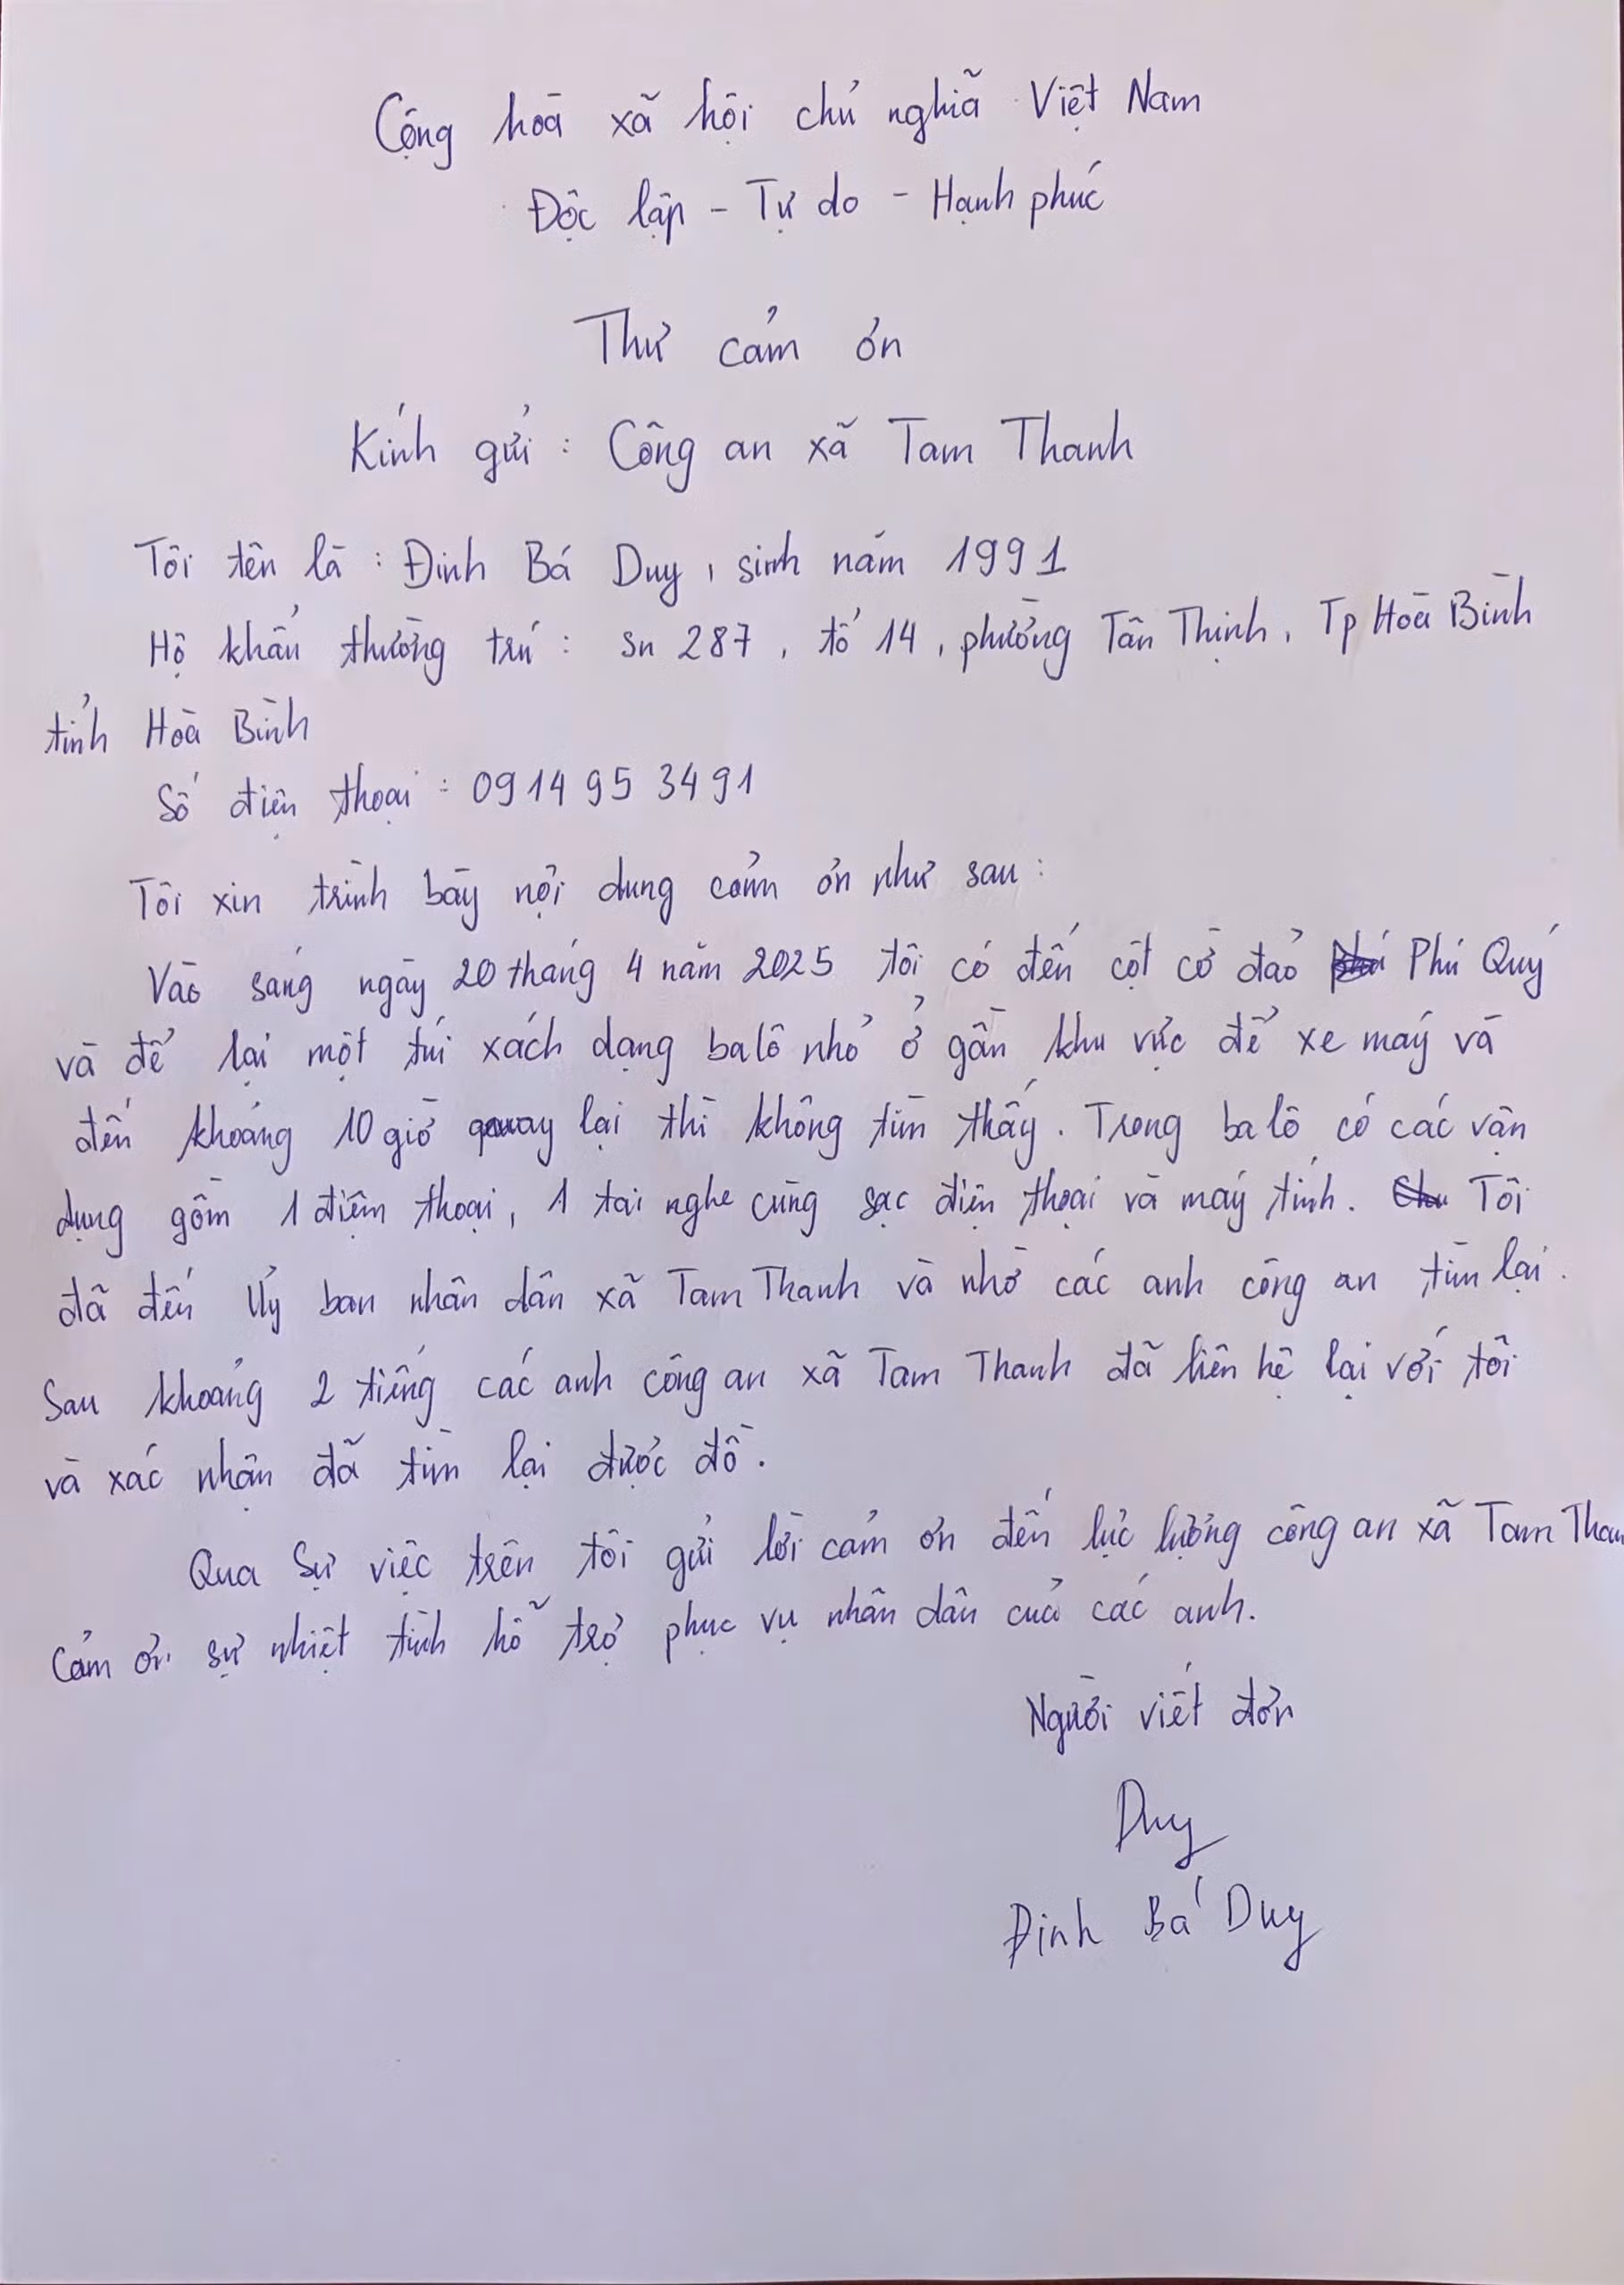 Cộng hoà xã hội chủ nghĩa Việt Nam
Độc lập - Tự do - Hạnh phúc
Thư cảm ơn
Kính gửi : Công an xã Tam Thanh
Tôi tên là : Đinh Bá Duy, sinh năm 1991
Hộ khẩu thường trú : sn 287, tổ 14, phường Tân Thịnh, Tp Hoà Bình
tỉnh Hoà Bình
Số điện thoại : 0914 95 3491
Tôi xin trình bày nội dung cảm ơn như sau :
Vào sáng ngày 20 tháng 4 năm 2025 tôi có đến cột cờ đảo Phú Quý
và để lại một túi xách dạng balô nhỏ ở gần khu vực để xe máy và
đến khoảng 10 giờ quay lại thì không tìm thấy. Trong ba lô có các vận
dụng gồm 1 điệm thoại, 1 tai nghe cùng sạc điện thoại và máy tính. Tôi
đã đến Uỷ ban nhân dân xã Tam Thanh và nhờ các anh công an tìm lại.
Sau khoảng 2 tiếng các anh công an xã Tam Thanh đã liên hệ lại với tôi
và xác nhận đã tìm lại được đồ.
Qua sự việc trên tôi gửi lời cảm ơn đến lực lượng công an xã Tam Than
Cảm ơn sự nhiệt tình hỗ trợ phục vụ nhân dân của các anh.
Người viết đơn
Duy
Đinh Bá Duy